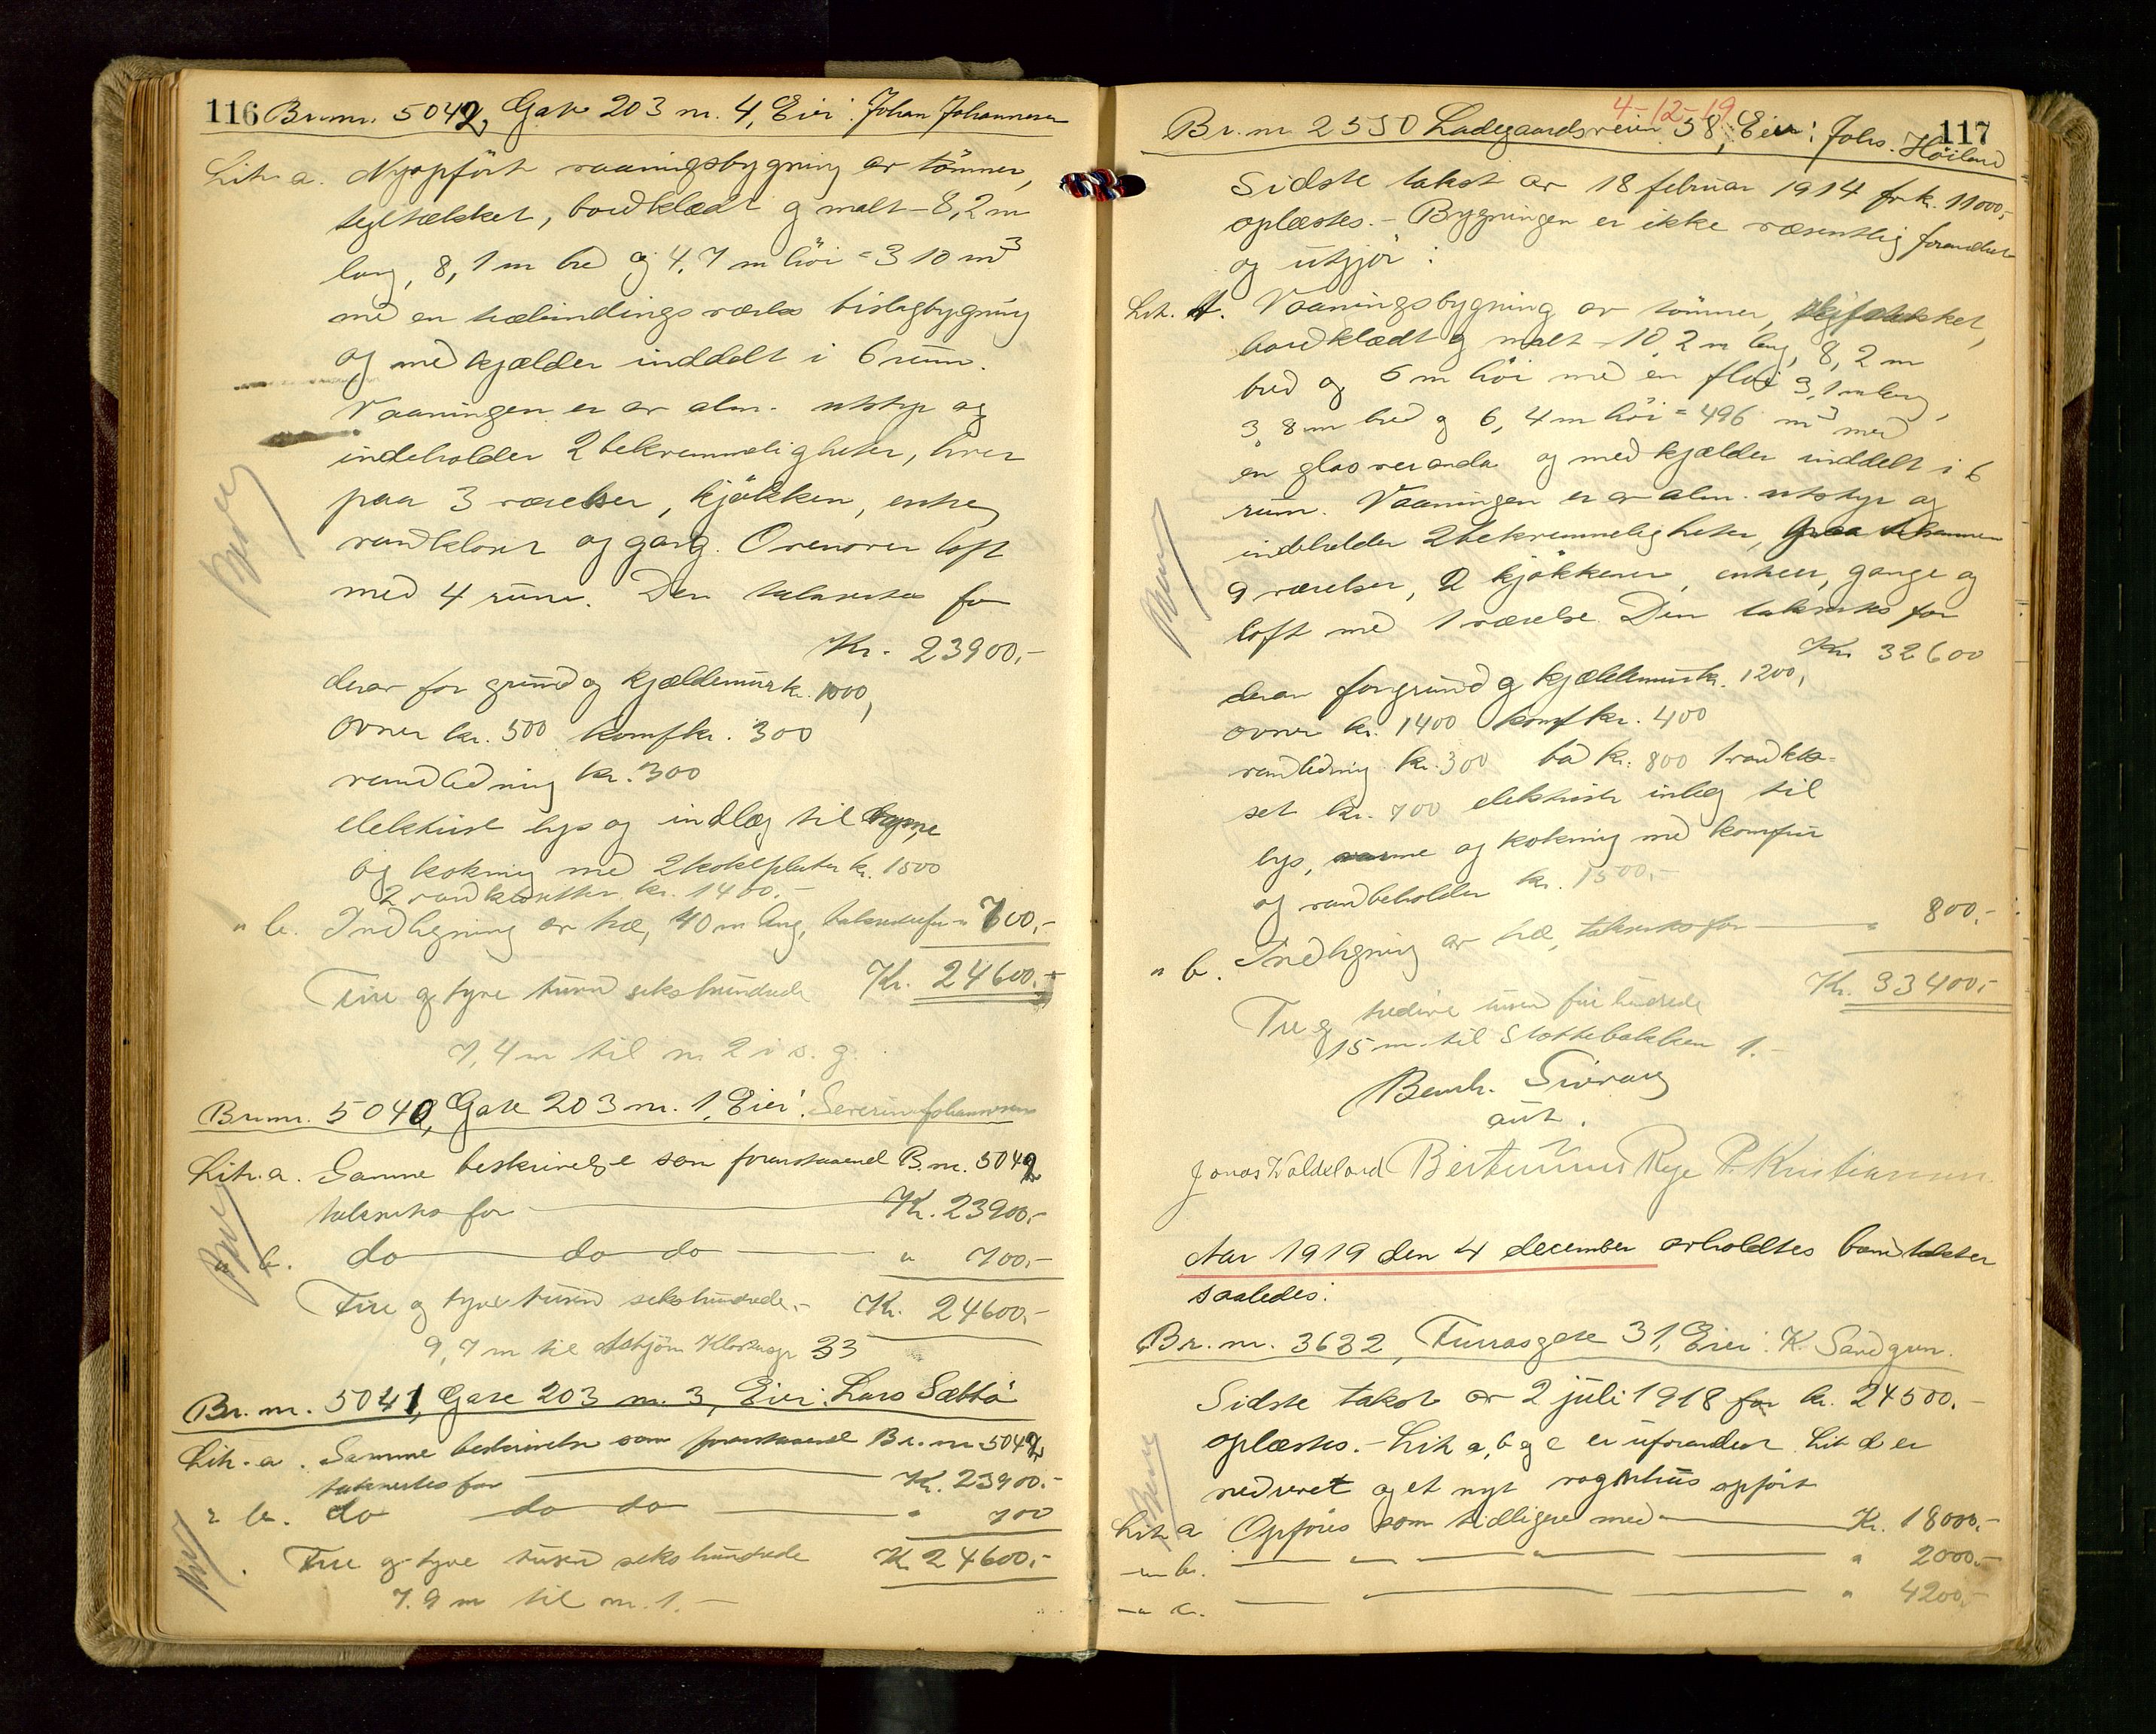 116 Br.nr. 5042, Gate 203 nr. 4, Eier: Johan Johannesen
Litr. a. Nyopført vaaningsbygning av tømmer,
tegltækket, bordklædt og malt - 8,2 m
lang, 8,1 m bred og 4,7 m høi = 310 m³
med en træbindingsværks bislagbygning
og med kjælder inddelt i 6 rum.
Vaaningen er av alm. utstyr og
indeholder 2 bekvemmeligheter, hver
paa 3 værelser, kjøkken, entre,
vandkloset og gang. Ovenover loft
med 4 rum. Den takseres for
Kr. 23900,-
derav for grund og kjældermur kr. 1000,
ovner kr. 500 komf kr. 300
vandledning kr. 300
elektrisk lys og indlæg til
og kokning med 2 kokeplater kr. 1500
2 vandklosetter kr. 1400.-
" b. Indhegning av træ, 40 m lang, takseres for " 700,-
Fire og tyve tusind sekshundrede Kr. 24600.-
7,4 m til nr. 2 i s. g.
Br.nr. 5040, Gate 203 nr. 1, Eier: Severin Johannesen
Litr. a. Samme beskrivelse som foranstaaende B.nr. 5042
takseres for Kr. 23900,-
" b. do do do " 700,-
Fire og tyve tusind sekshundrede.- Kr. 24600,-
9,7 m til Asbjørn Klostersgt 33
Br.nr. 5041, Gate 203 nr. 3, Eier: Lars Sæbbø
Litr. a. Samme beskrivelse som foranstaaende Br.nr. 5042
takseres for Kr. 23900.-
" b. do do do " 700
Fire og tyve tusind sekshundrede Kr. 24600,-
7.9 m til nr. 1.-
4-12-19
117
Br.nr 2550 Ladegaardsveien 58, Eier: Johs. Høiland
Sidste takst av 18 februar 1914 for kr. 11000,-
oplæstes. - Bygningen er ikke væsentlig forandret
og utgjør:
Litr. A. Vaaningsbygning av tømmer,
bordklædt og malt - 10,2 m lang, 8,2 m
bred og 6 m høi med en fløi 3,1 m lang,
3,8 m bred og 6,4 m høi = 496 m³ med
en glasveranda og med kjælder inddelt i 6
rum. Vaaningen er av alm. utstyr og
indeholder 2 bekvemmeligheter,
9 værelser, 2 kjøkkener, entreer, gange og
loft med 1 værelse. Den takseres for
Kr. 32600
derav for grund og kjældermur kr. 1200,
ovner kr. 1400 komf kr. 400
vandledning kr. 300 bad kr. 800 1 vandklo-
set kr. 700 elektrisk inlæg til
lys, varme og kokning med komfur
og vandbeholder kr. 1500,-
" b. Indhegning av træ, takseres for " 800,-
Kr. 33400,-
Tre og tredive tusind fire hundrede
15 m til Slottebakken 1.-
Bernh. Sivrang
aut.
Jonas Waldeland Bertinius Rege P. Kristiansen
Aar 1919 den 4 december avholdtes brandtakster
saaledes:
Br.nr. 3632, Turrasgate 31, Eier: K. Sandgren.
Sidste takst av 2 juli 1918 for kr. 24500.-
oplæstes. - Litr a, b og c er uforandret. Litr d er
nedrevet og et nyt vognhus opført
Litr. a Opføres som tidligere med Kr. 18000,-
-"- b. " " " 2000,-
-"- c. " 4200,-